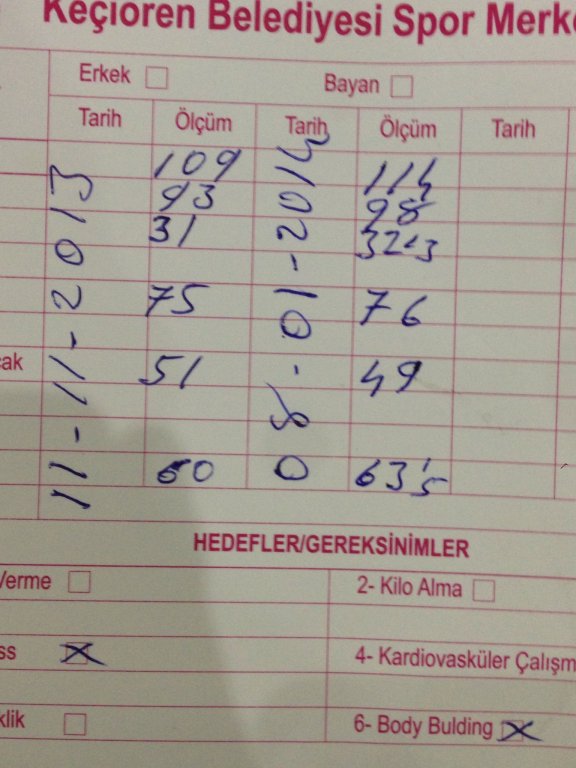 Keçiören Belediyesi Spor Merk
Erkek Bayan
Tarih Ölçüm Tarih Ölçüm Tarih
11-11-2013
109
93
31
75
51
60
08-01-2013
114
98
32.3
76
49
63.5
cak
HEDEFLER/GEREKSİNİMLER
Verme 2- Kilo Alma
ss 4- Kardiovasküler Çalışm
klik 6- Body Bulding